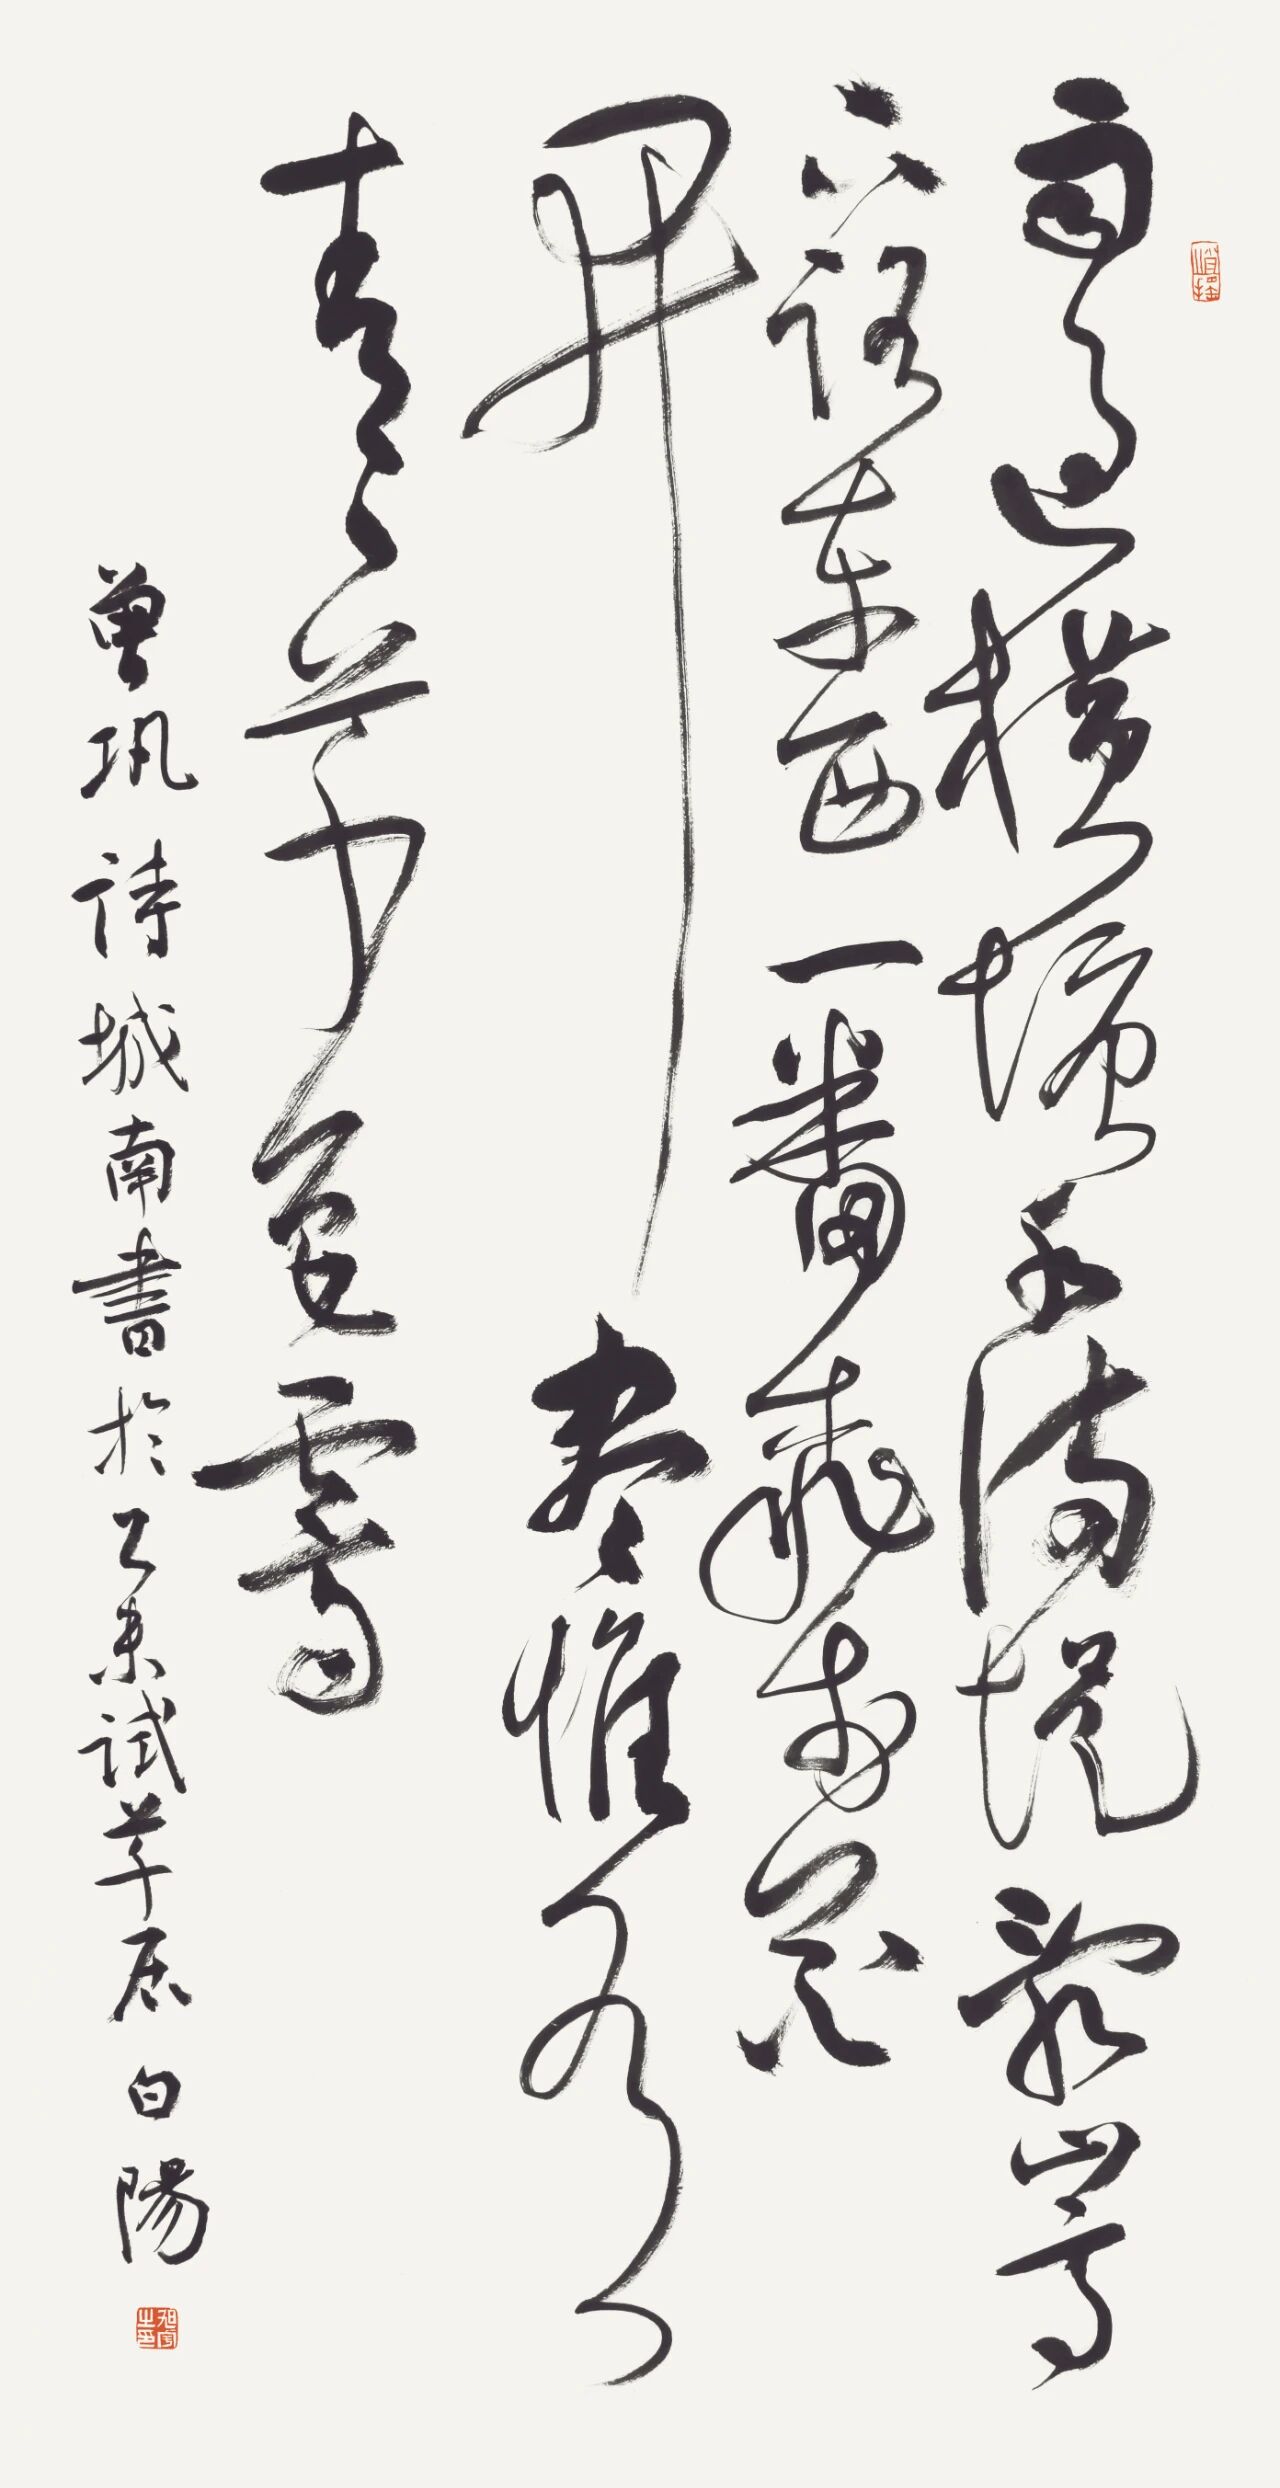 雨過橫塘水滿堤亂山高
下路東西一番桃李花
開盡惟有
青々草色齊
曾巩詩城南書於乙未試草居白陽